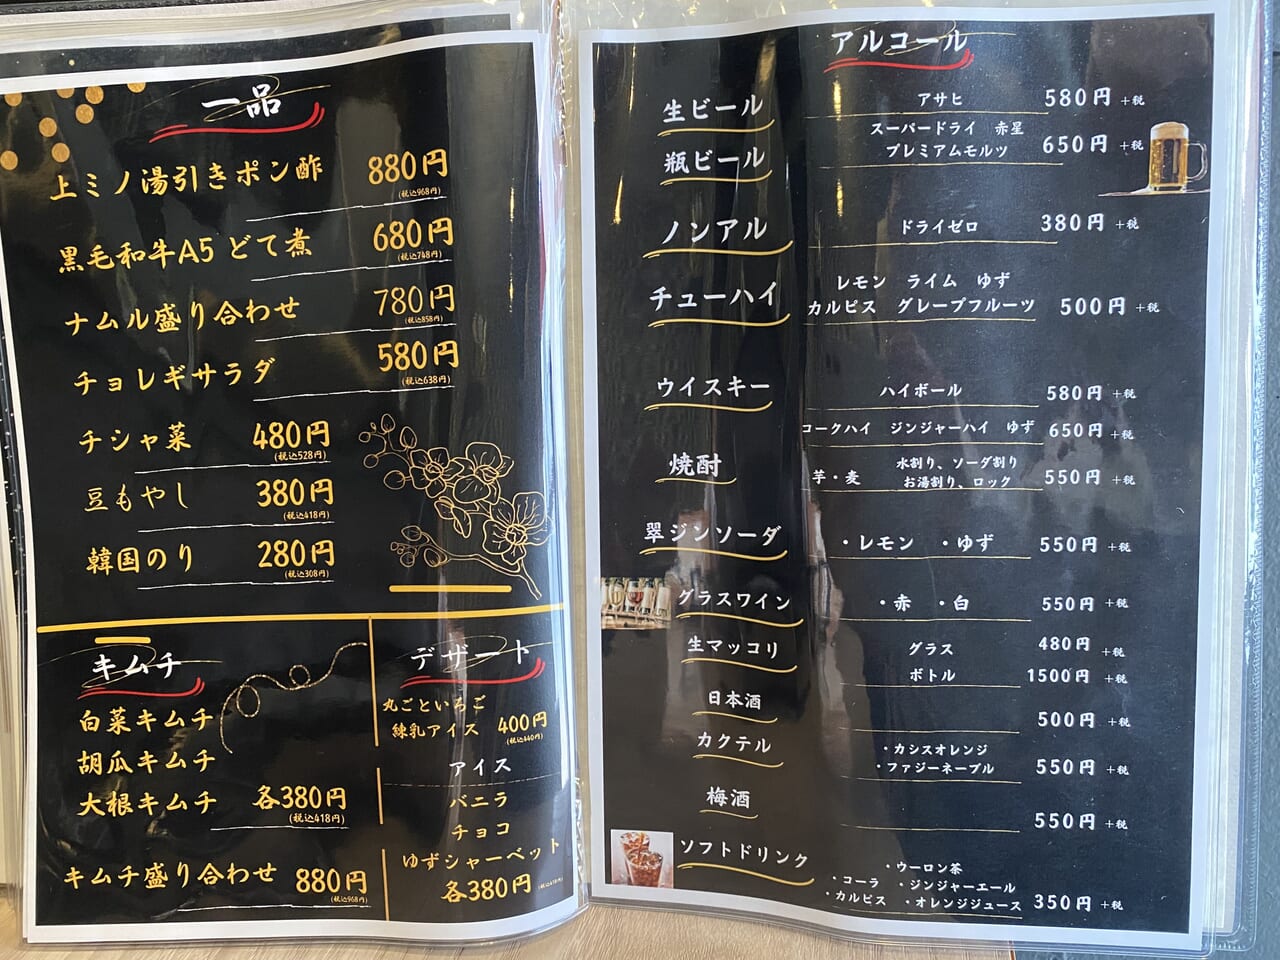 一品
上ミノ湯引きポン酢 880円
(税込968円)
黒毛和牛A5 どて煮 680円
(税込748円)
ナムル盛り合わせ 780円
(税込858円)
チョレギサラダ 580円
(税込638円)
チシャ菜 480円
(税込528円)
豆もやし 380円
(税込418円)
韓国のり 280円
(税込308円)
キムチ
白菜キムチ
胡瓜キムチ
大根キムチ 各380円
(税込418円)
キムチ盛り合わせ 880円
(税込968円)
デザート
丸ごといちご
練乳アイス 400円
(税込440円)
アイス
バニラ
チョコ
ゆずシャーベット
各380円
アルコール
生ビール アサヒ 580円 +税
瓶ビール スーパードライ 赤星
プレミアムモルツ 650円 +税
ノンアル ドライゼロ 380円 +税
チューハイ レモン ライム ゆず
カルピス グレープフルーツ 500円 +税
ウイスキー ハイボール 580円 +税
コークハイ ジンジャーハイ ゆず 650円 +税
焼酎 芋・麦 水割り、ソーダ割り
お湯割り、ロック 550円 +税
翠ジンソーダ ・レモン ・ゆず 550円 +税
グラスワイン ・赤 ・白 550円 +税
生マッコリ グラス 480円 +税
ボトル 1500円 +税
日本酒 500円 +税
カクテル ・カシスオレンジ
・ファジーネーブル 550円 +税
梅酒 550円 +税
ソフトドリンク ・ウーロン茶
・コーラ ・ジンジャーエール
・カルピス ・オレンジジュース 350円 +税